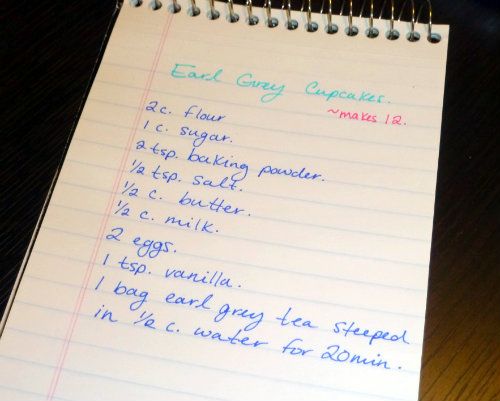 Earl Grey Cupcakes.
~makes 12.
2 c. flour
1 c. sugar.
2 tsp. baking powder.
1/2 tsp. salt.
1/2 c. butter.
1/2 c. milk.
2 eggs.
1 tsp. vanilla.
1 bag earl grey tea steeped
in 1/2 c. water for 20min.